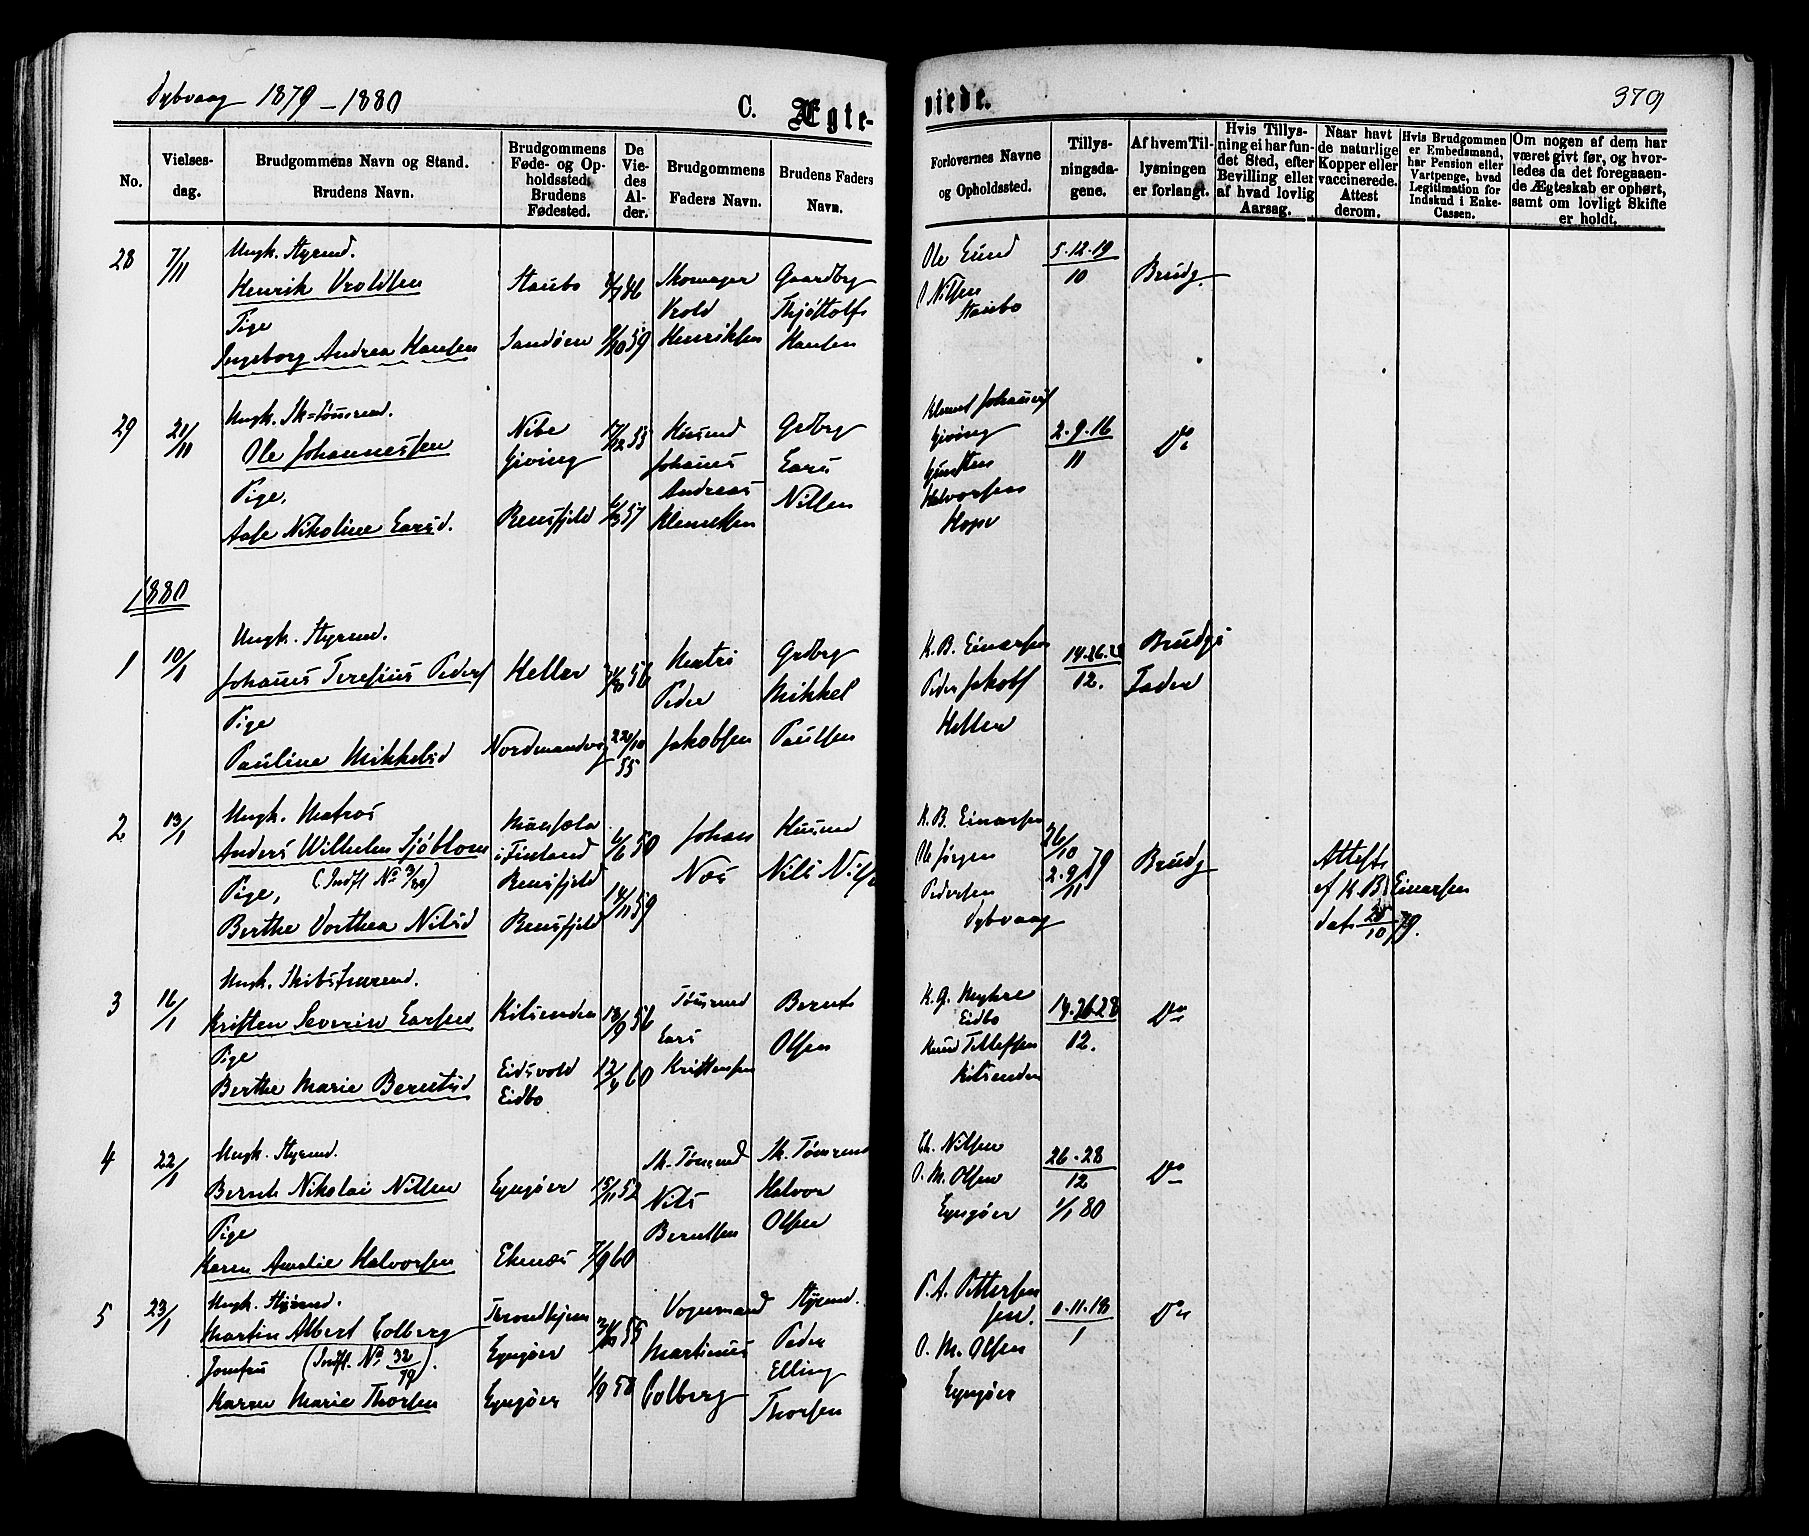 Dybvaag 1879-1880
C. Ægte-
viede.
379
No.
Vielses-
dag.
Brudgommens Navn og Stand.
Brudens Navn.
Brudgommens
Føde- og Op-
holdssted.
Brudens
Fødested.
De
Vie-
des
Al-
der.
Brudgommens
Faders Navn.
Brudens Faders
Navn.
Forlovernes Navne
og Opholdssted.
Tillys-
ningsda-
gene.
Af hvem Til-
lysningen
er forlangt.
Hvis Tillys-
ning ei har fun-
det Sted, efter
Bevilling eller
af hvad lovlig
Aarsag.
Naar havt
de naturlige
Kopper eller
vaccinerede.
Attest
derom.
Hvis Brudgommen
er Embedsmand,
har Pension eller
Vartpenge, hvad
Legitimation for
Indskud i Enke-
Cassen.
Om nogen af dem har
været givt før, og hvor-
ledes da det foregaaen-
de Ægteskab er ophørt,
samt om lovligt Skifte
er holdt.
28
7/11
Ungk. Styrmd.
Henrik Vroldsen
Pige
Ingeborg Andrea Hansen
Staubø
Sandøen
59
Skomager
Vrold
Henriksen
Gaardbrg
Thjøstolf
Hansen
Ole Lund
O Nilsen
Staubo
5.12.19
10
Brudg.
29
21/11
Ole Johannessen
Pige,
Aase Nikoline Larsd.
Nibe
Giving
Rensfjeld
17/12 55
57
Husmd
Johans
Andreas
Klemetsen
Gdbrg
Lars
Nilsen
Giving
Halvorsen
Hope
2.9.16
11
Do
1880
1
10/1
Ungk. Styrmd.
Johans Teresius Peders
Pige
Pauline Mikkelsd
Heller
Nordmandvig
56
22/10
55
Peder
Jakobsen
Gdbrg
Mikkel
Paulsen
K. B. Einarsen
Peder Jakobs
Heller
14.26.28
12.
Brudgs
Fader
2
13/1
Ungk. Matros
Anders Wilhelm Sjøblom
(Indfl No 3/80)
Pige,
Berthe Dorthea Nilsd
i Finland
Rensfjeld
Rensfjeld
6/6 50
14/11 59
Johan
Næs
Husmd
Nils Nils
K. B. Einarsen
Ole Jørgen
Pedersen
Dybvaag
26/10
2.9/11 79
Brudg
Attest
af K B Einarsen
dat. 25/10 79.
3
16/1
Kristen Severin Larsen
Pige
Berthe Marie Berntsd
Kilsenden
Eidsvold
Eidbo
18/9 56
12/4 60
Tømrmd
Lars
Kristensen
Bernt
Olsen
Eidbo
Knud Tellefsen
Kilsenden
14.26.28
12.
Do
4
22/1
Ungk. Styrmd.
Bernt Nikolai Nilsen
Pige
Karen Amalie Halvorsen
Lyngøer
Ekenæs
15/11 52
7/9 60
Sk. Tømrmd
Nils
Berntsen
Sk. Tømrmd
Halvor
Olsen
Ch. Nilsen
O. M. Olsen
Lyngøer
26-28
12
1/1 80
Do
5
23/1
Ungk. Styrmd.
Martin Albert Colberg
Jomfru
(Indfl. No 32/79).
Karen Marie Thorsen
Throndhjem
Lyngøer
Lyngøer
55
1/9 58
Vognmand
Martinus
Colberg
Styrmd.
Peder
Elling
Thorsen
P. A. Pettersen
sen.
O. M. Olsen
Lyngøer
11.18
1
Do